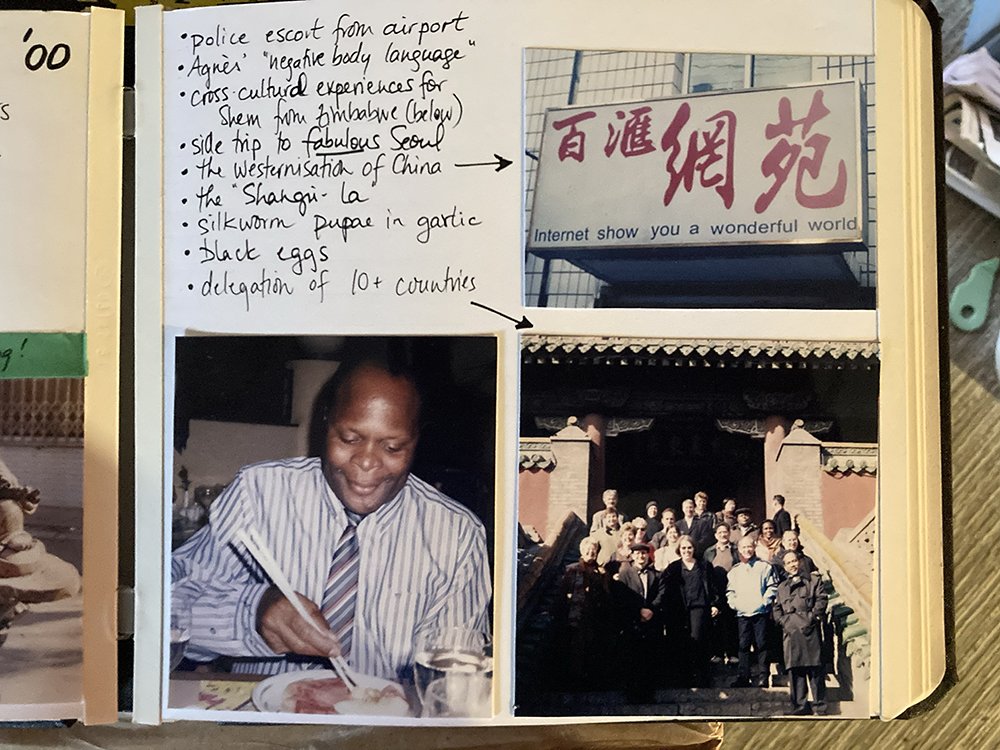 '00
s
g!
• police escort from airport
• Agnès' "negative body language"
• cross-cultural experiences for
Shem from Zimbabwe (below)
• side trip to fabulous Seoul
• the westernisation of China
• the "Shangri-La"
• silkworm pupae in garlic
• black eggs
• delegation of 10+ countries
百滙網苑
Internet show you a wonderful world